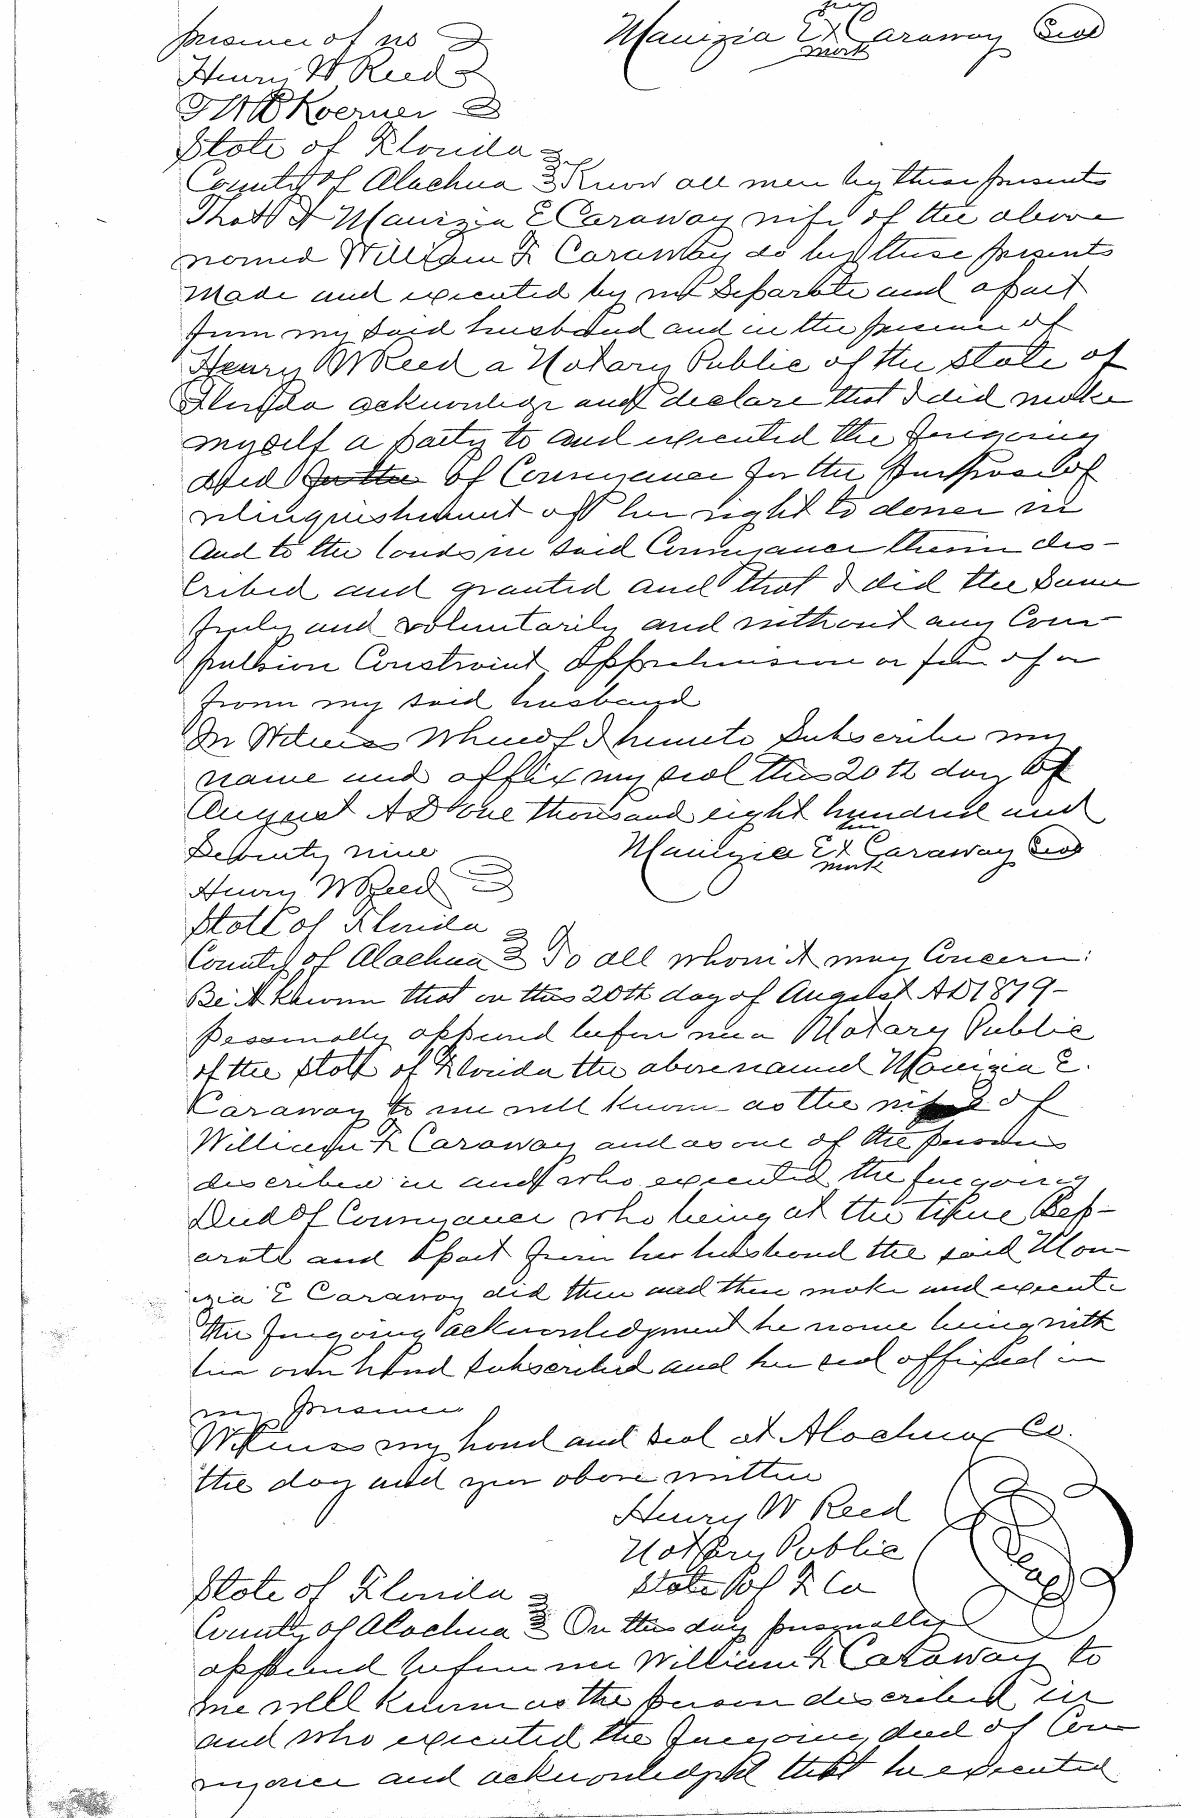 presence of us
Manizia E her x mark Caraway Seal
Henry W Reed
State of Florida
County of Alachua Know all men by these presents
That I Manizia E Caraway wife of the above
named William F Caraway do by these presents
made and executed by me Separate and apart
from my said husband and in the presence of
Henry W Reed a Notary Public of the State of
Florida acknowledge and declare that I did make
myself a party to and executed the foregoing
deed for the of Conveyance for the purpose of
relinquishment of her right to dower in
and to the lands in said Conveyance therein des-
cribed and granted and that I did the Same
freely and voluntarily and without any Com-
pulsion Constraint Apprehension or fear of or
from my said husband
In Witness Whereof I hereunto Subscribe my
name and affix my seal this 20th day of
August AD one thousand eight hundred and
Seventy nine Manizia E her x mark Caraway Seal
Henry W Reed
State of Florida
County of Alachua To all whom it may Concern:
Be it known that on this 20th day of August AD 1879-
personally appeared before me a Notary Public
of the State of Florida the above named Manizia E.
Caraway to me well known as the wife of
William F Caraway and as one of the persons
described in and who executed the foregoing
Deed of Conveyance who being at the time Sep-
arate and apart from her husband the said Man-
izia E Caraway did then and there make and execute
the foregoing acknowledgment he name being with
her own hand Subscribed and her seal affixed in
my presence
Witness my hand and seal at Alachua Co.
the day and year above written
Henry W Reed
Notary Public
State of Fla
Seal
State of Florida
County of Alachua On this day personally
appeared before me William F Caraway to
me well known as the person described in
and who executed the foregoing deed of Con-
veyance and acknowledged that he executed